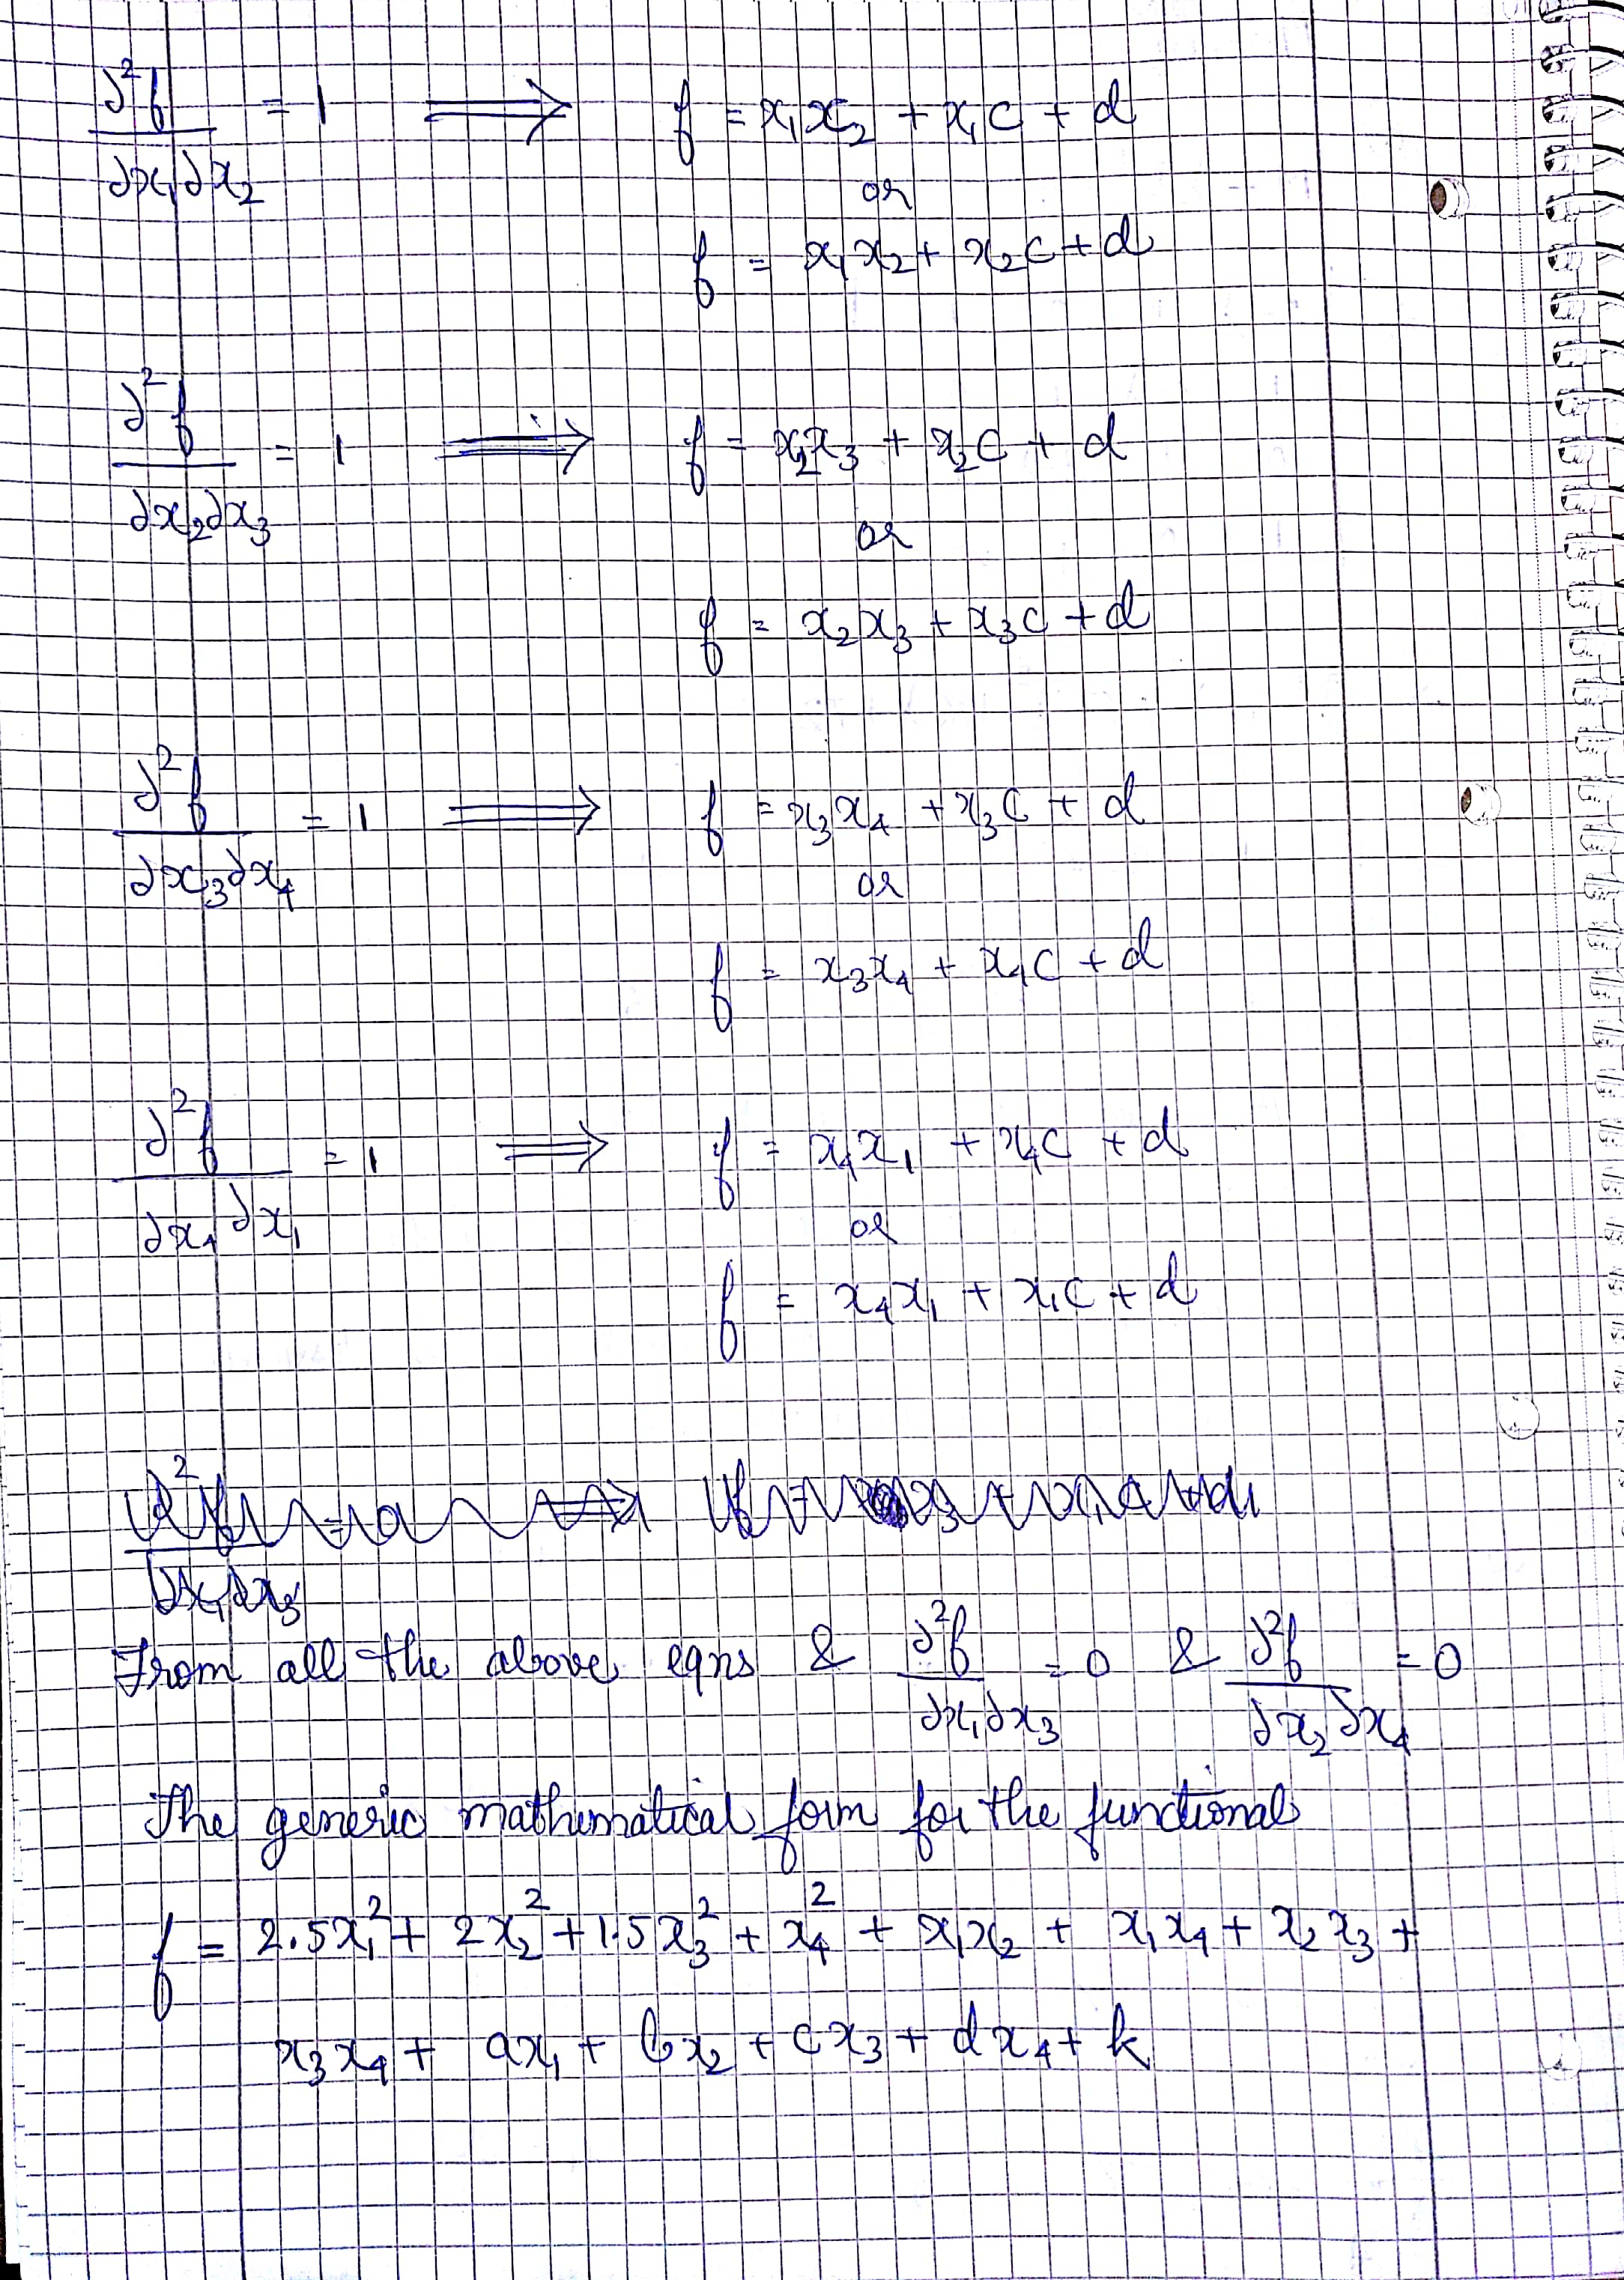 ∂²f/∂x₁∂x₂ = 1 ⟹ f = x₁x₂ + x₁c + d
or
f = x₁x₂ + x₂c + d
∂²f/∂x₂∂x₃ = 1 ⟹ f = x₂x₃ + x₂c + d
or
f = x₂x₃ + x₃c + d
∂²f/∂x₃∂x₄ = 1 ⟹ f = x₃x₄ + x₃c + d
or
f = x₃x₄ + x₄c + d
∂²f/∂x₄∂x₁ = 1 ⟹ f = x₄x₁ + x₄c + d
or
f = x₄x₁ + x₁c + d
From all the above eqns & ∂²f/∂x₁∂x₃ = 0 & ∂²f/∂x₂∂x₄ = 0
The generic mathematical form for the functional
f = 2.5x₁² + 2x₂² + 1.5x₃² + x₄² + x₁x₂ + x₁x₄ + x₂x₃ +
x₃x₄ + ax₁ + bx₂ + cx₃ + dx₄ + k